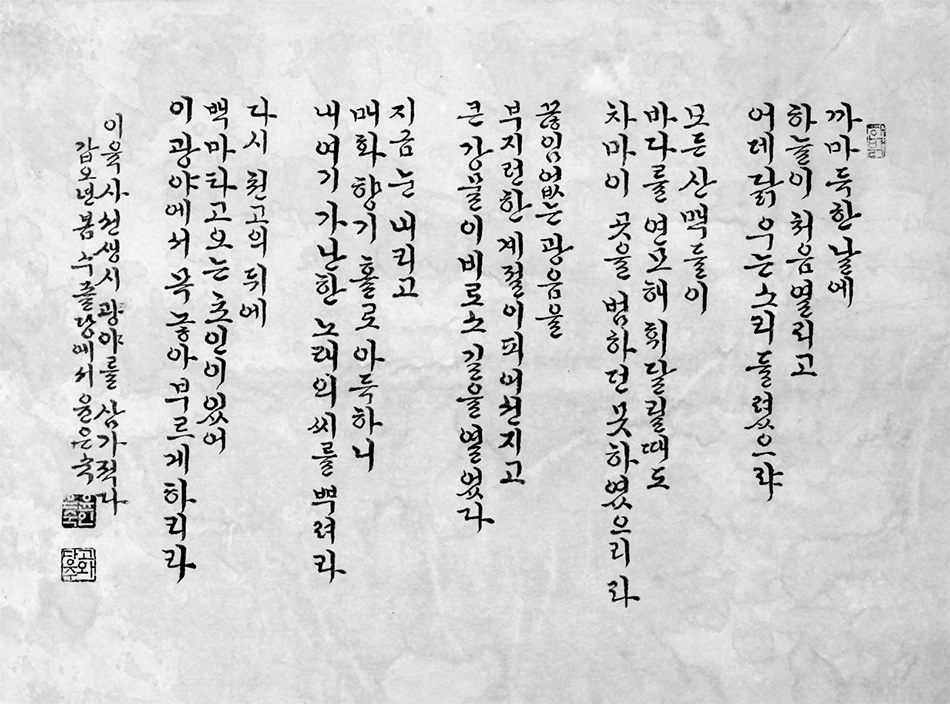 까마득한 날에
하늘이 처음 열리고
어데 닭 우는 소리 들렸으랴
모든 산맥들이
바다를 연모해 휘달릴때도
차마 이 곳을 범하던 못하였으리라
끊임없는 광음을
부지런한 계절이 피어선 지고
큰 강물이 비로소 길을 열었다
지금 눈 내리고
매화 향기 홀로 아득하니
내 여기 가난한 노래의 씨를 뿌려라
다시 천고의 뒤에
백마 타고 오는 초인이 있어
이 광야에서 목놓아 부르게 하리라
이육사 선생 시 광야를 삼가 적다
갑오년 봄 윤은숙